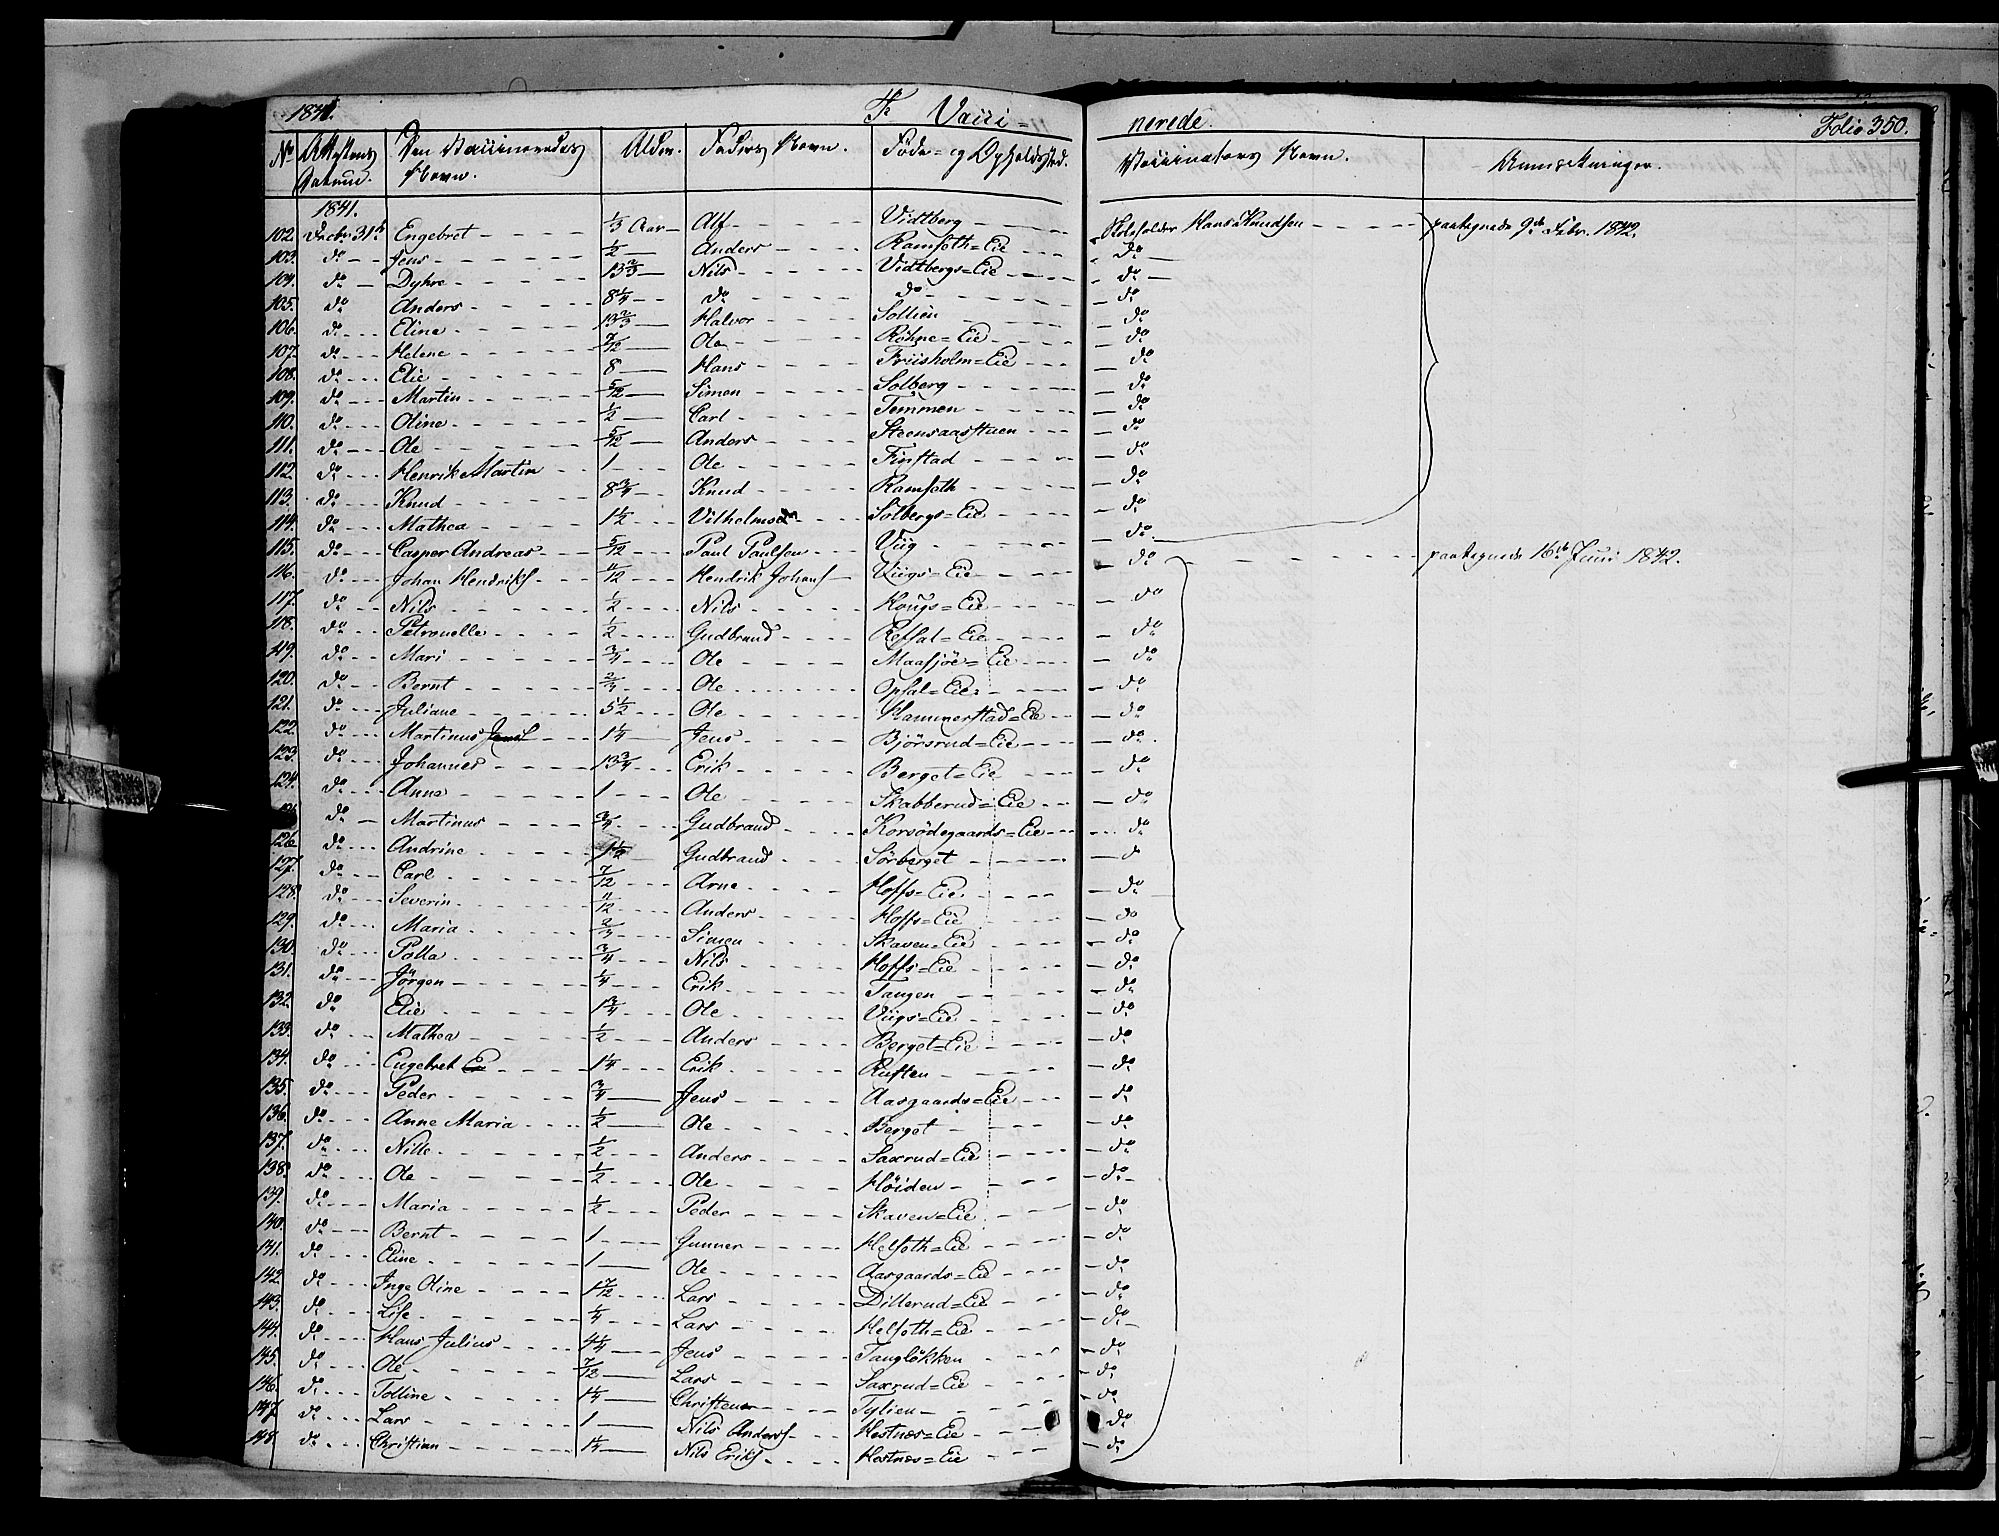 1841. F. Vacci=nerede. Folio 350.
No Attestens Datum. Den Vaccineredes Navn. Alder. Faders Navn. Føde= og Opholdssted. Vaccinateurs Navn. Anmærkninger.
1841.
102. Decbr 31te Engebret 1/3 Aar Alf Vidtberg Skoleholder Hans Knudsen paategnede 9de Febr. 1842.
103. do Jens 1/2 Anders Ramseth=Eie do
104. do Dyhre 13 2/3 Nils Vidtbergs=Eie do
105. do Anders 8 1/4 do do do
106. do Eline 13 2/3 Halvor Sollien do
107. do Helene 7/12 Ole Røhne=Eie do
108. do Elie 8 Hans Friisholm=Eie do
109. do Martin 5/12 Simen Solberg do
110. do Oline 1/2 Carl Temmen do
111. do Ole 5/12 Anders Steensaasstuen do
112. do Henrik Martin 1 Ole Finstad do
113. do Knud 8 3/4 Knud Ramseth do
114. do Mathea 1 1/2 Vilhelmsen Solbergs=Eie do
115. do Casper Andreas 5/12 Paul Paulsen Viig do
116. do Johan Hendriks. 11/12 Hendrik Johans. Viigs=Eie do paategnede 16de Juni 1842.
117. do Nils 1/2 Nils Hougs=Eie do
118. do Petronelle 1/2 Gudbrand Refsal=Eie do
119. do Mari 3/4 Ole Maasjøe=Eie do
120. do Bernt 2/3 Ole Opsal=Eie do
121. do Juliane 5 1/2 Ole Hammerstad=Eie do
122. do Martinus Jens. 1 1/4 Jens Bjørsrud=Eie do
123. do Johannes 13 3/4 Erik Berget=Eie do
124. do Anne 1 Ole Skabberud=Eie do
do Martinus 3/4 Gudbrand Korsødegaards=Eie do
126. do Andrine 1 1/2 Gudbrand Sørberget do
127. do Carl 7/12 Arne Hoffs=Eie do
128. do Severin 11/12 Anders Hoffs=Eie do
129. do Maria 2/3 Simen Skaven=Eie do
130. do Polla 3/4 Nils Hoffs=Eie do
131. do Jørgen 1/4 Erik Tangen do
132. do Elie 1 3/4 Ole Viigs=Eie do
133. do Mathea 1/2 Anders Berget=Eie do
134. do Engebret 1 1/4 Erik Ruften do
135. do Peder 3/4 Jens Aasgaards=Eie do
136. do Anne Maria 1/2 Ole Berget do
137. do Nille 1/2 Anders Saxrud=Eie do
138. do Ole 1/2 Ole Høiden do
139. do Maria 1/2 Peder Skaven=Eie do
140. do Bernt 1 Gunner Helseth=Eie do
141. do Eline 1 Ole Aasgaards=Eie do
142. do Inge Oline 1 7/12 Lars Dillerud=Eie do
143. do Lise 1/4 Lars Helseth=Eie do
144. do Hans Julius 4 1/4 Jens Tangløkken do
145. do Ole 7/12 Lars Saxrud=Eie do
146. do Tolline 1 1/4 Christen Tylien do
147. do Lars 1 Nils Anders. Hestnæs=Eie do
148. do Christian 1 1/4 Nils Eriks. Hestnæs=Eie do